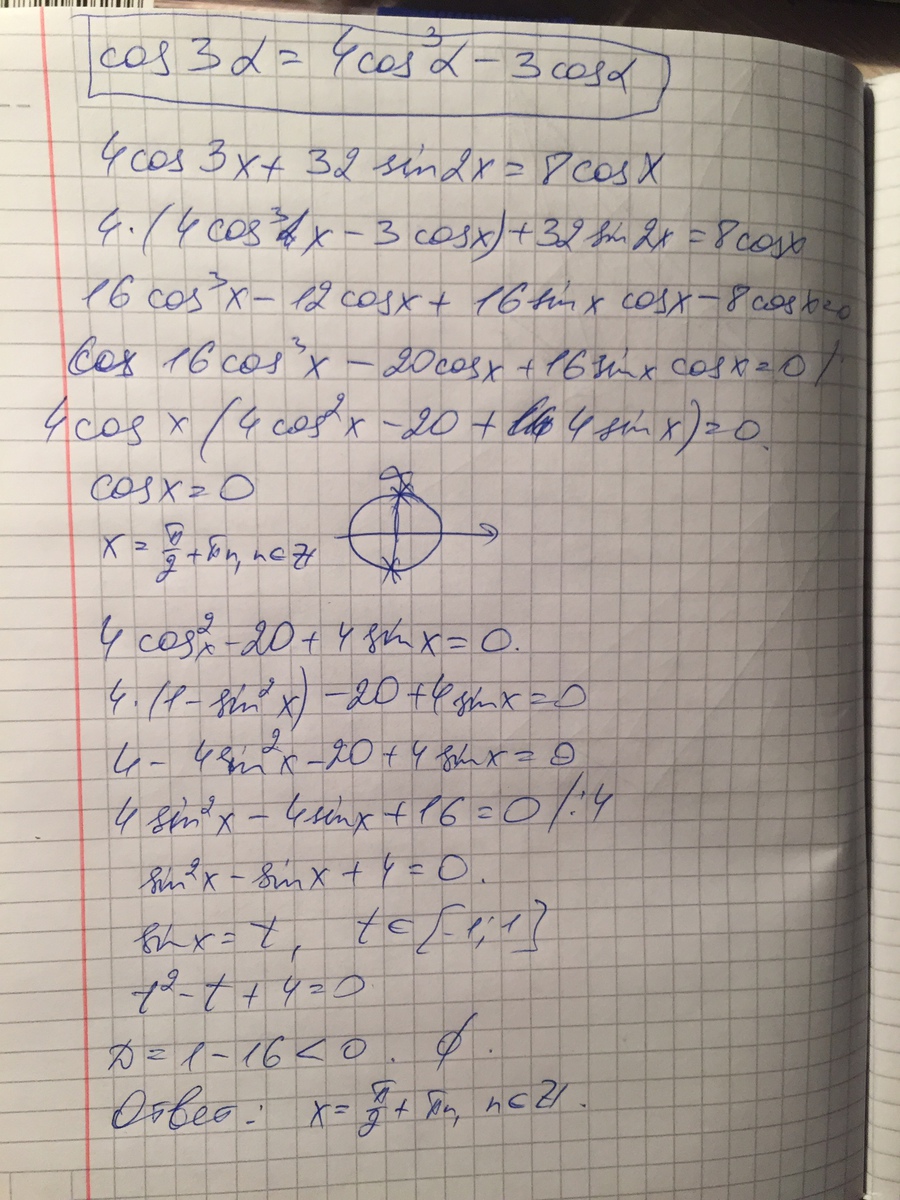 cos 3α = 4cos³α − 3cosα
4cos 3x + 32 sin2x = 8cosx
4·(4cos³x − 3cosx) + 32 sin2x = 8cosx
16cos³x − 12cosx + 16sinx cosx − 8cosx=0
16cos³x − 20cosx + 16sinx cosx = 0 /:
4cos x (4cos²x − 20 + 4sinx) = 0.
cosx = 0
x = π/2 + πn, n∈Z
4 cos²x − 20 + 4sinx = 0.
4·(1 − sin²x) − 20 + 4sinx = 0
4 − 4sin²x − 20 + 4sinx = 0
4sin²x − 4sinx + 16 = 0 /:4
sin²x − sinx + 4 = 0.
sinx = t, t∈[−1;1]
t² − t + 4 = 0
D = 1 − 16 < 0. ∅.
Ответ: x = π/2 + πn, n∈Z.